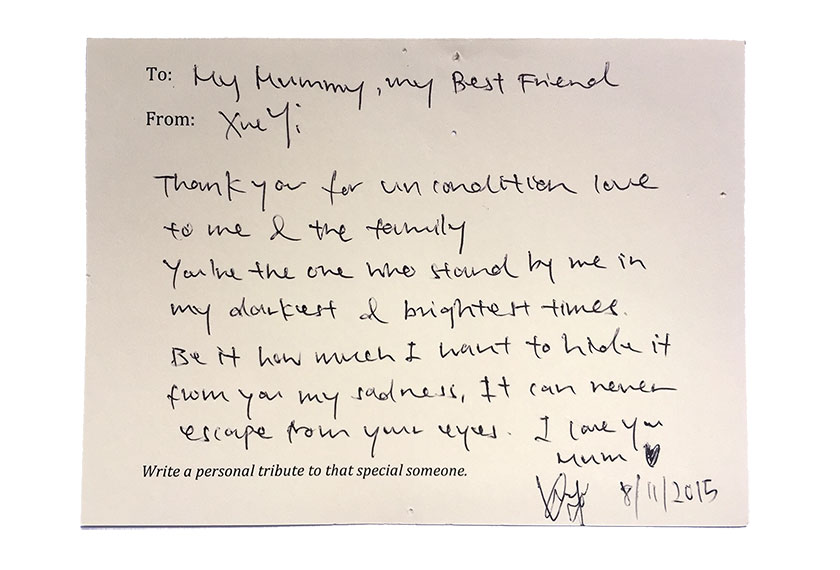 To: My Mummy, my Best Friend
From: Xue Yi
Thank you for un condition love
to me & the family
You're the one who stand by me in
my darkest & brightest times.
Be it how much I want to hide it
from you my sadness, It can never
escape from your eyes. I love you
Mum ♥
Write a personal tribute to that special someone.
8/11/2015